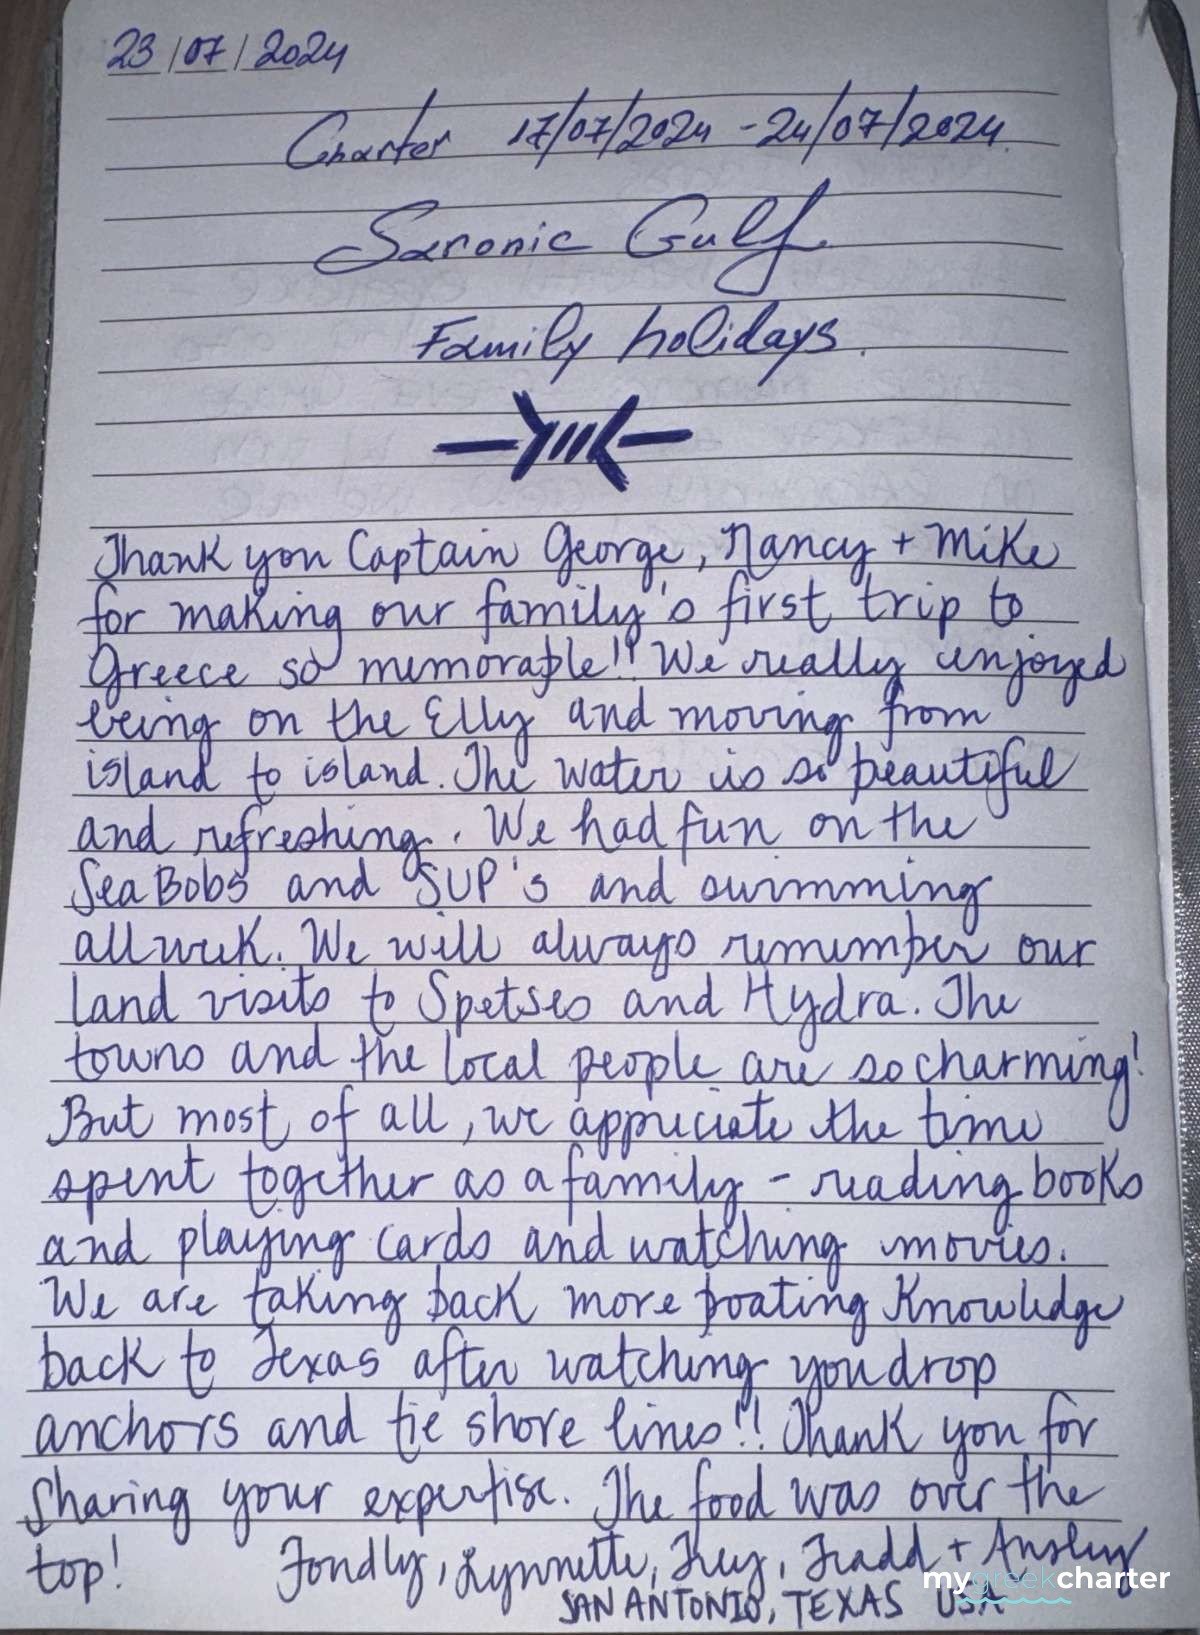 23/07/2024
Charter 17/07/2024 - 24/07/2024.
Saronic Gulf.
Family holidays.
Thank you Captain George, Nancy + Mike
for making our family's first trip to
Greece so memorable!! We really enjoyed
being on the Elly and moving from
island to island. The water is so beautiful
and refreshing. We had fun on the
SeaBobs and SUP's and swimming
all week. We will always remember our
land visits to Spetses and Hydra. The
towns and the local people are so charming!
But most of all, we appreciate the time
spent together as a family - reading books
and playing cards and watching movies.
We are taking back more boating knowledge
back to Texas after watching you drop
anchors and tie shore lines!! Thank you for
sharing your expertise. The food was over the
top! Fondly, Lynnette, Trey, Tradd + Ansley
SAN ANTONIO, TEXAS USA
mygreekcharter